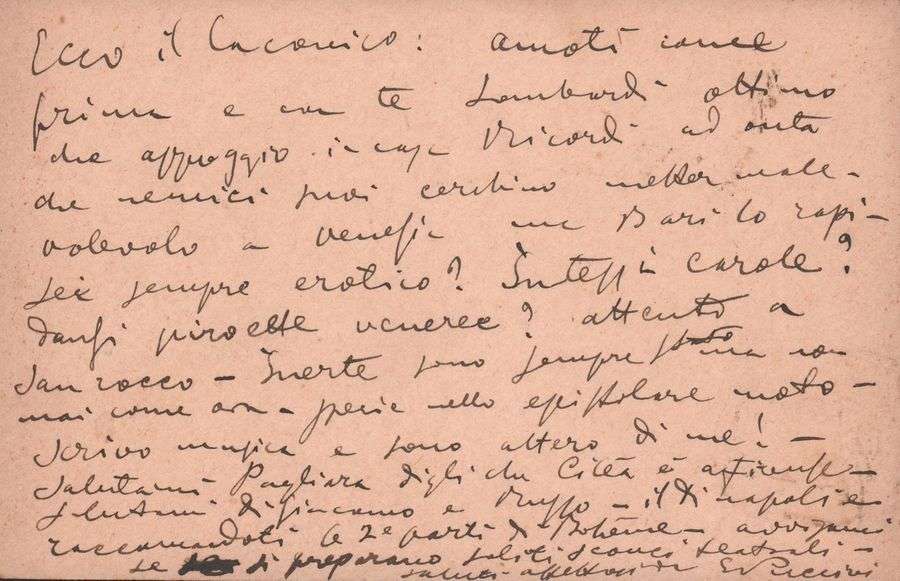 Ecco il laconico: amoti come
prima e con te Lombardi ottimo
che appoggio in casa Ricordi ad onta
che nemici suoi cerchino metter male-
volevolo a Venezia ma Bari lo rapi-
sei sempre erotico? Intessi carole?
danzi piroette veneree? attento a
San rocco - Inerte sono sempre stato ma non
mai come ora - specie nello epistolare moto -
Scrivo musica e sono altero di me! -
Salutami Pagliara digli che Città è a Firenze -
Salutami di Giacomo e Ruffo - il Di napoli e
raccomandati le 2e parti di Bohème - avvisami
se si preparano soliti sconci teatrali -
saluti affettuosi da GPuccini